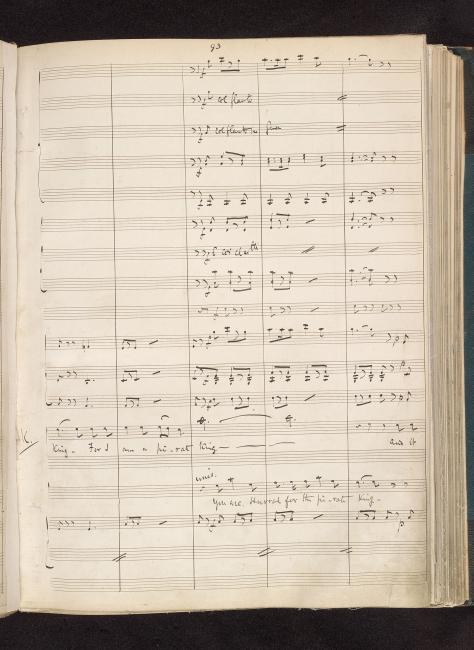 93
col flauto
col flauto
K.
King. For I am a pi-rate King
and it
unis.
You are. Hurrah for the pi-rate King.